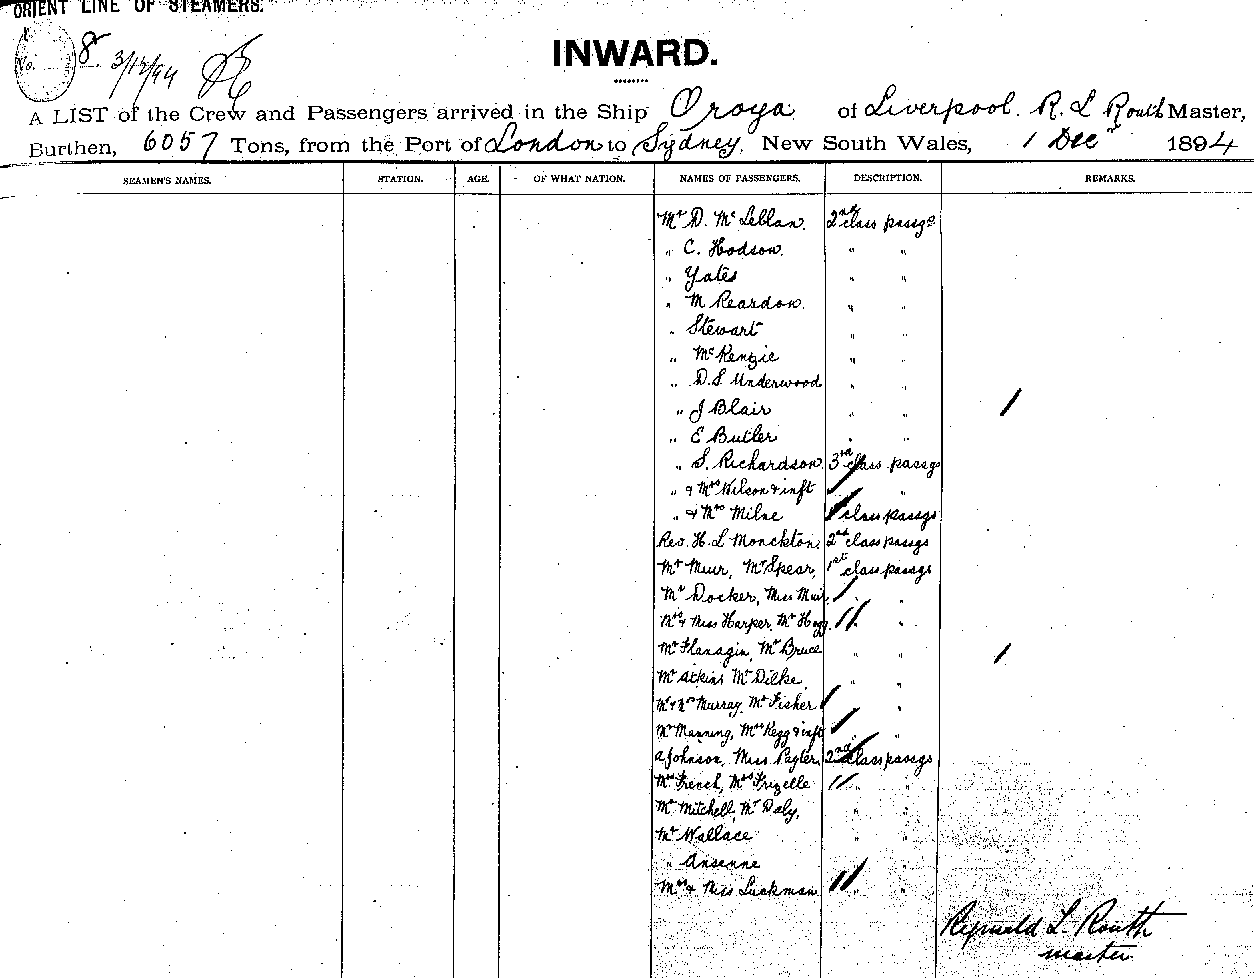 ORIENT LINE OF STEAMERS.
No. 8. 3/12/94
INWARD.
A LIST of the Crew and Passengers arrived in the Ship Oroya of Liverpool. R. L Routh Master,
Burthen, 6057 Tons, from the Port of London to Sydney, New South Wales, 1 Dec 1894
SEAMEN'S NAMES. STATION. AGE. OF WHAT NATION. NAMES OF PASSENGERS. DESCRIPTION. REMARKS.
Mr D. McLellan. 2nd class passgs
" C. Hodson. " "
" Yates " "
" M Reardon. " "
" Stewart " "
" McKenzie " "
" D.S. Underwood " "
" J Blair " "
" E Butler " "
" S. Richardson. 3rd class passgs
" & Mrs Wilson & inft "
" & Mrs Milne class passgs
Rev. H. L Monckton, 2nd class passgs
Mr Muir, Mr Spear, 1st class passgs
Mr Docker, Miss Muir, "
Mrs & Miss Harper, Mr Hogg. "
Mr Flanagin, Mr Bruce " "
Mr Atkins Mr Dilke, " "
Mr & Mrs Murray, Mr Fisher "
Mr Manning, Mrs Kegg & inft "
A Johnson, Miss 2nd class passgs
Mrs French, Mrs Frizelle " "
Mr Mitchell, Mr Daly, " "
Mr Wallace " "
" Ansenne "
Mrs & Miss Luckman " "
Reginald L Routh
master